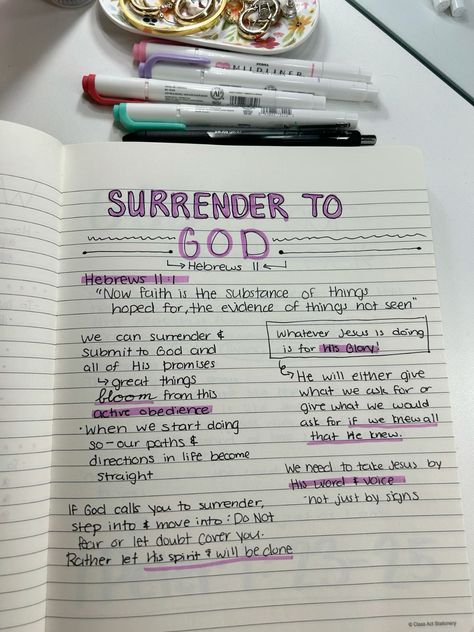 ZEBRA MILDLINER
SURRENDER TO
GOD
Hebrews 11
Hebrews 11:1
"Now faith is the substance of things
hoped for, the evidence of things not seen"
we can surrender &
submit to God and
all of His promises
↳ great things
bloom from this
active obedience
• when we start doing
so - our paths &
directions in life become
straight
whatever Jesus is doing
is for His Glory!
↳ He will either give
what we ask for or
give what we would
ask for if we knew all
that He knew.
we need to take Jesus by
His word & voice
• not just by signs
IF God calls you to surrender,
step into & move into: Do Not
fear or let doubt cover you.
Rather let His spirit & will be done
© Class Act Stationery